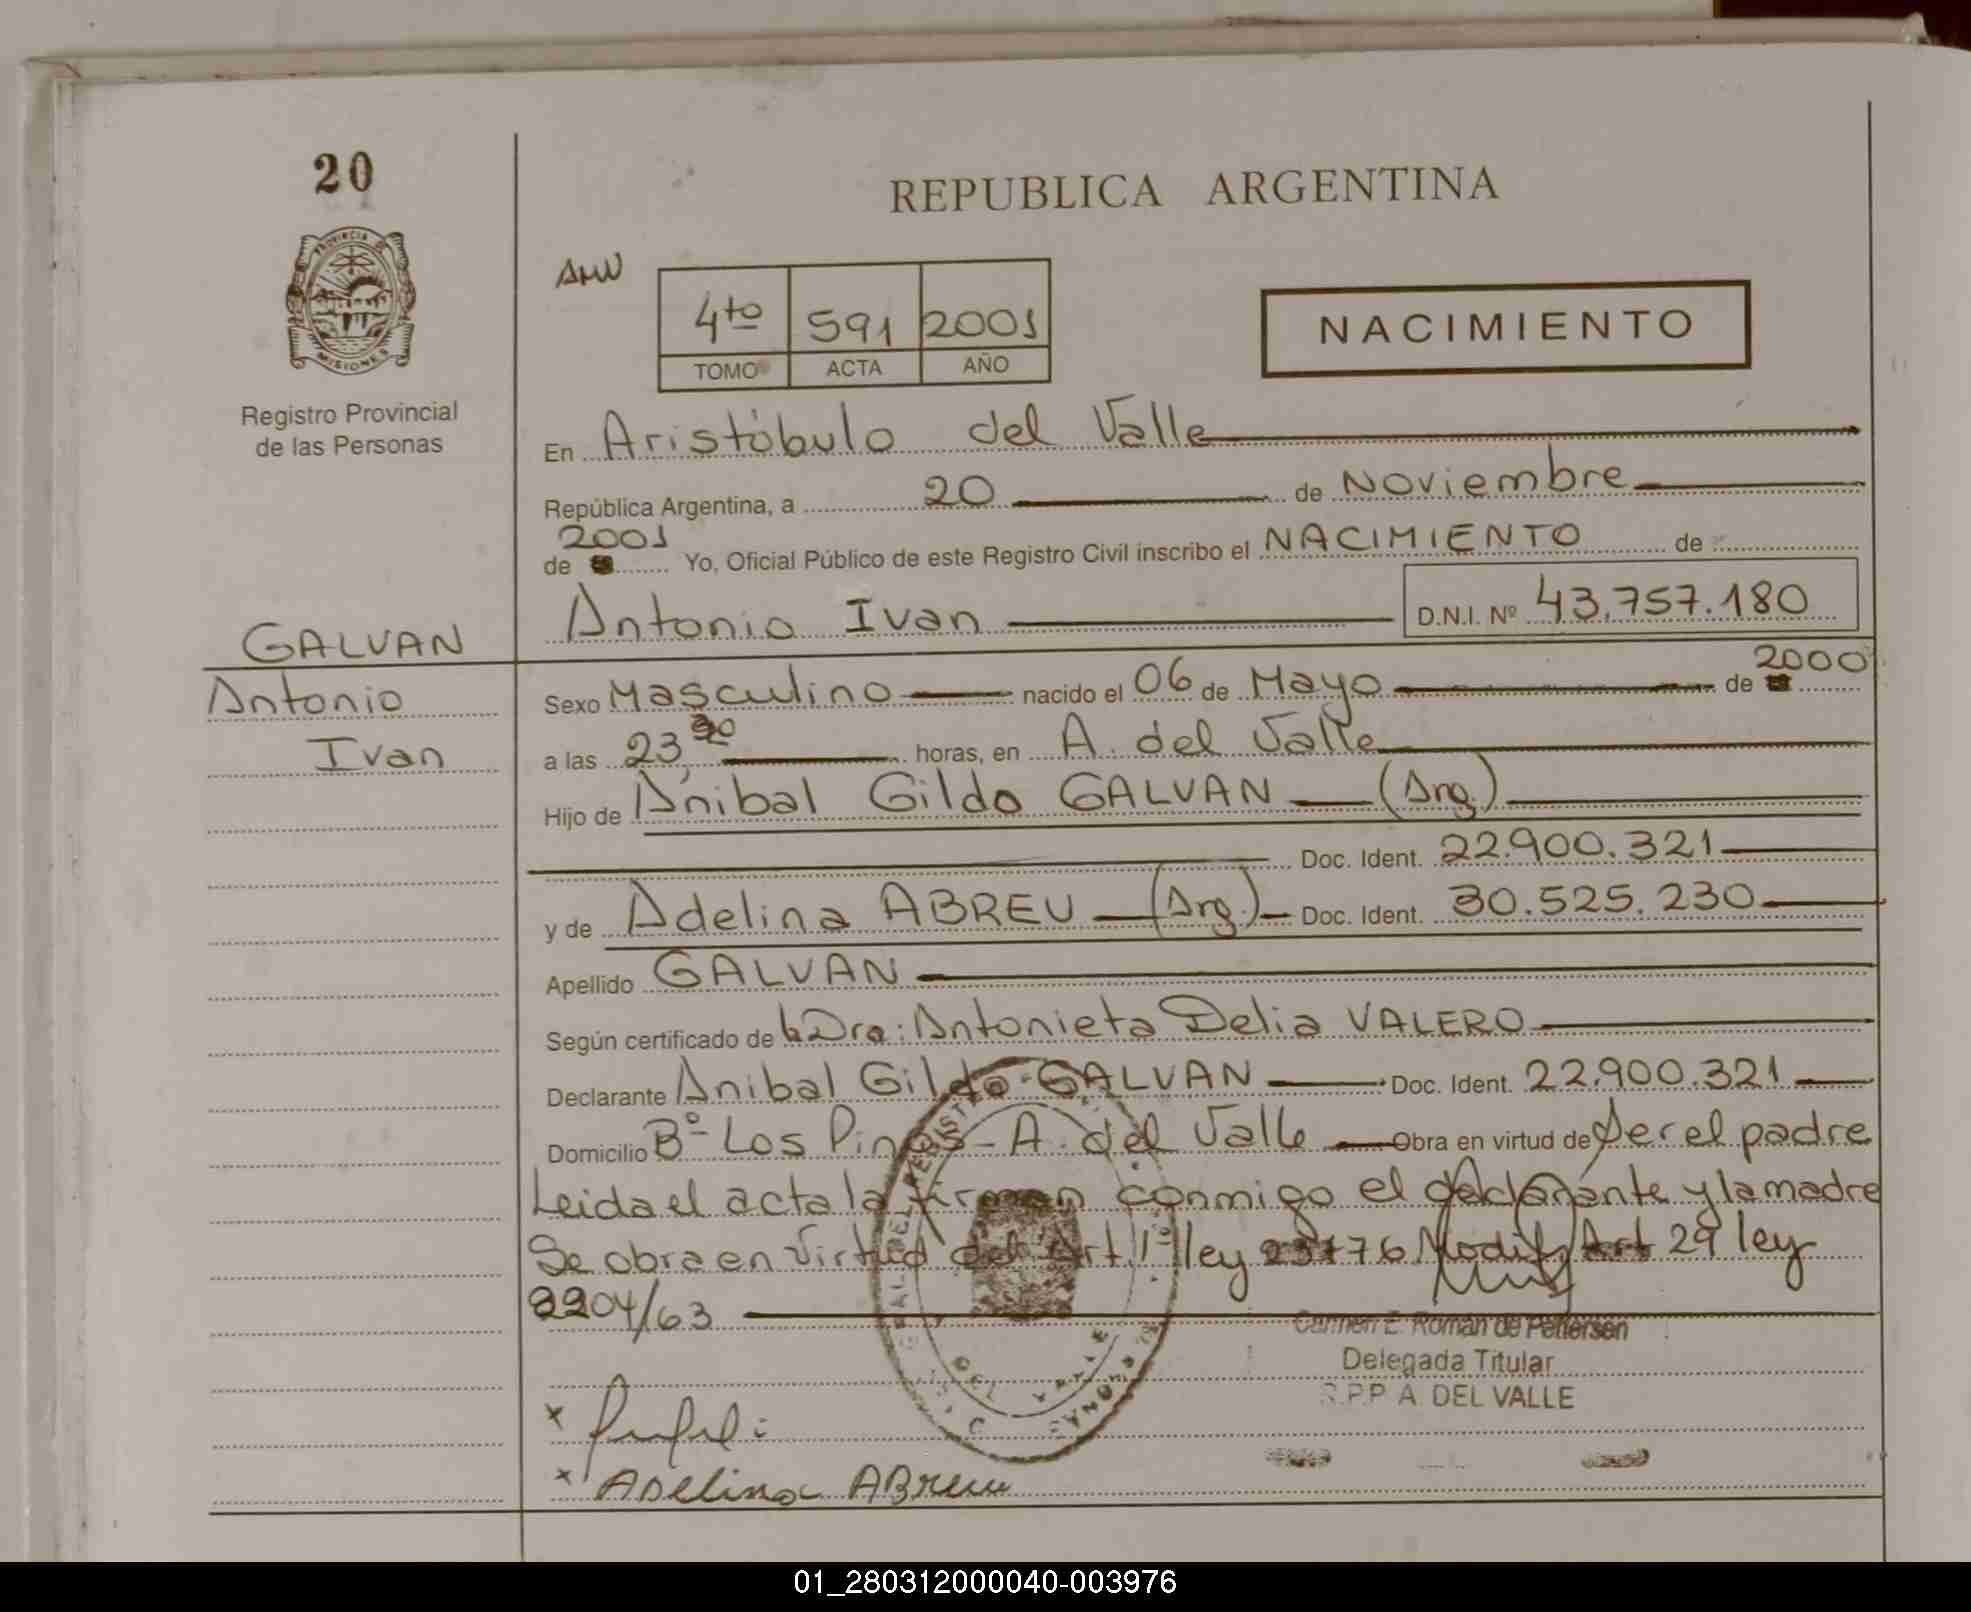 20
REPUBLICA ARGENTINA
PROVINCIA DE
MISIONES
Registro Provincial
de las Personas
4to 591 2001
TOMO ACTA AÑO
NACIMIENTO
En Aristóbulo del Valle
República Argentina, a 20 de Noviembre
2001
de Yo, Oficial Público de este Registro Civil inscribo el NACIMIENTO de
Antonio Ivan D.N.I. Nº 43.757.180
GALVAN
Antonio
Ivan
Sexo Masculino nacido el 06 de Mayo de 2000
a las 23, horas, en A. del Valle
Hijo de Anibal Gildo GALVAN (Arg.)
Doc. Ident. 22.900.321
y de Adelina ABREU (Arg.) Doc. Ident. 30.525.230
Apellido GALVAN
Según certificado de la Dra: Antonieta Delia VALERO
Declarante Anibal Gildo GALVAN Doc. Ident. 22.900.321
Domicilio Bº Los Pinos - A. del Valle Obra en virtud de ser el padre
Leida el acta la firman conmigo el declarante y la madre
Se obra en virtud del Art. 1º ley Modif. Art 29 ley
2204/63
Carmen E. Roman de Pettersen
Delegada Titular
R.P.P A. DEL VALLE
x
x Adelina ABreu
01_280312000040-003976